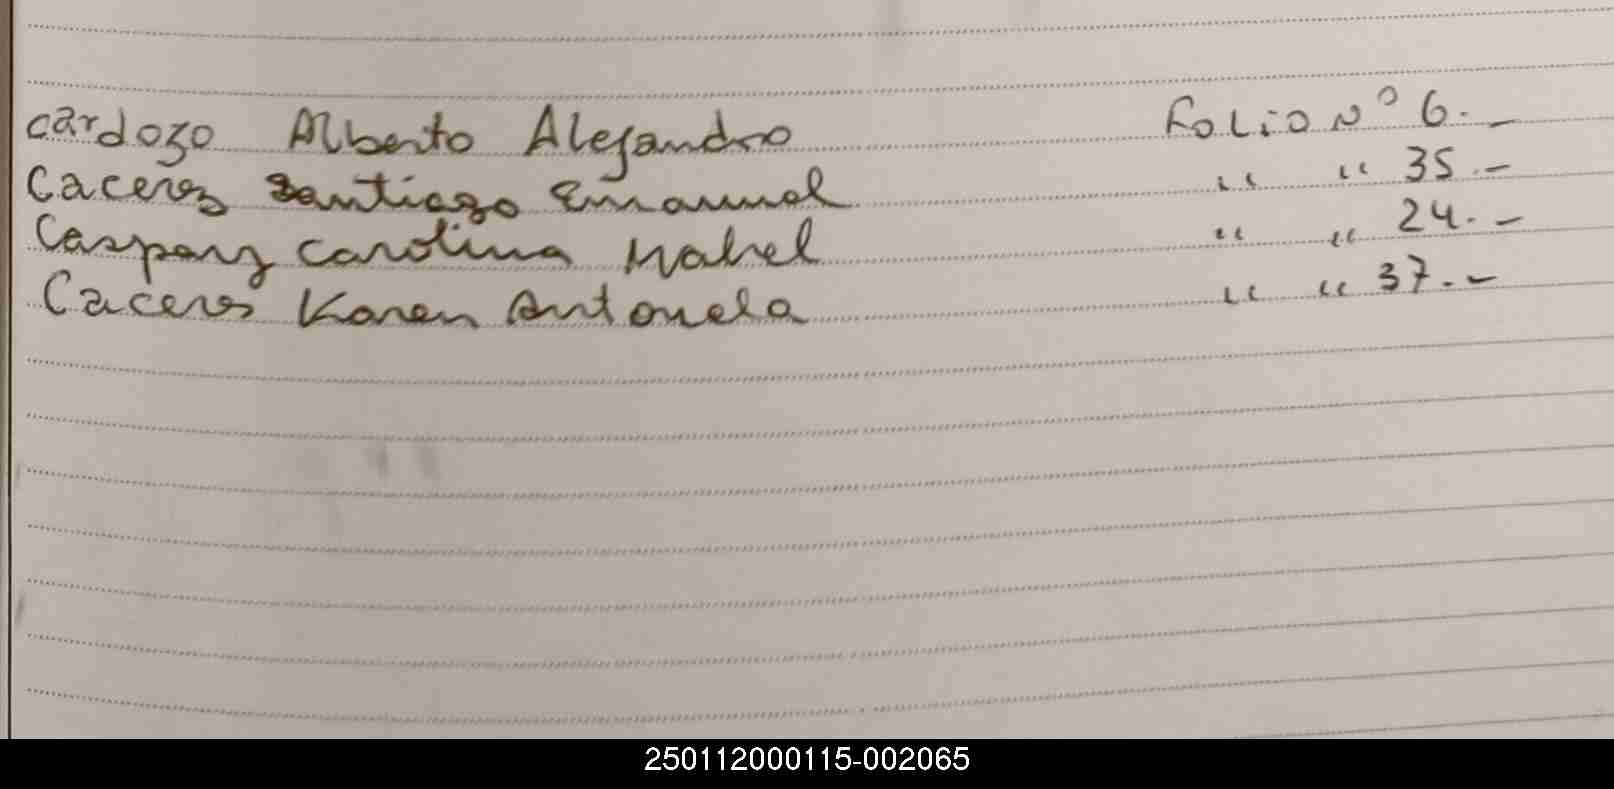 Cardozo Alberto Alejandro Folio Nº 6.-
Caceres Santiago Emanuel " " 35.-
Caspary Carolina Mabel " " 24.-
Caceres Karen Antonela " " 37.-
250112000115-002065